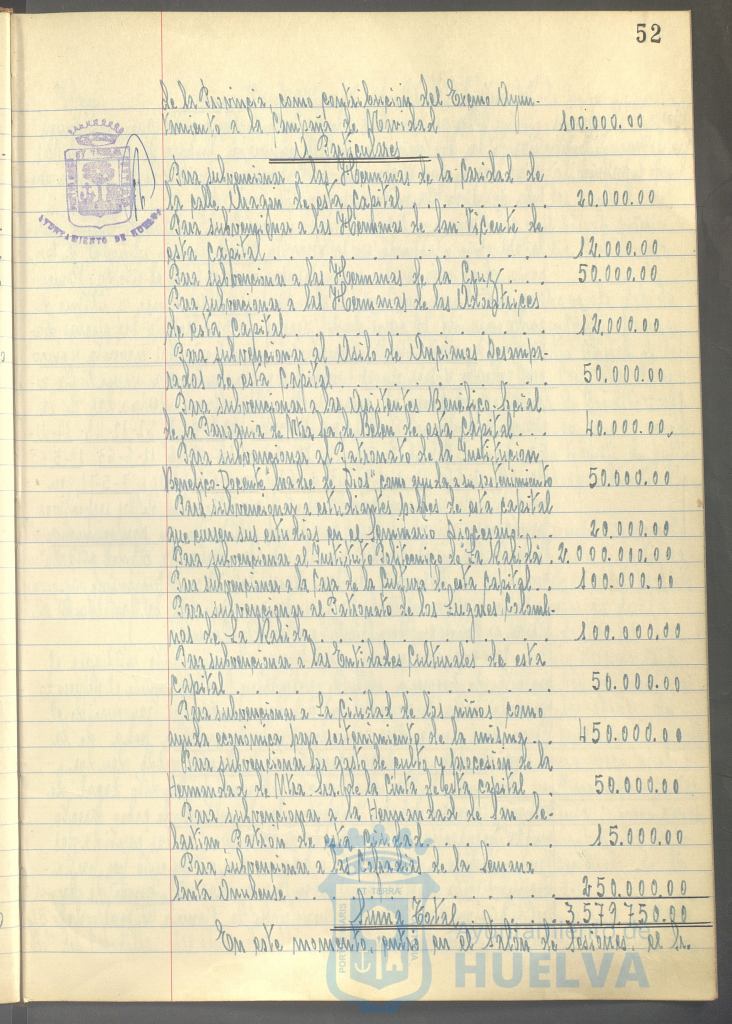 52
de la Provincia, como contribución del Excmo Ayun-
tamiento a la Campaña de Navidad 100.000.00
A Particulares
Para subvencionar a las Hermanas de la Caridad de
la calle Aragon de esta capital . . . . . . . 20.000.00
Para subvencionar a las Hermanas de San Vicente de
esta capital . . . . . . . 12.000.00
Para subvencionar a las Hermanas de la Cruz . . . . 50.000.00
Para subvencionar a las Hermanas de las Adoratrices
de esta Capital . . . . . . . 12.000.00
Para subvencionar al Asilo de Ancianos Desampa-
rados de esta Capital . . . . . . . 50.000.00
Para subvencionar a las Asistentes Benéfico-Social
de la Parroquia de Ntra. Sra. de Belen de esta Capital . . . 40.000.00
Para subvencionar al Patronato de la Institucion
Benéfico-Docente "Madre de Dios" como ayuda a su sostenimiento 50.000.00
Para subvencionar a estudiantes pobres de esta capital
que cursen sus estudios en el Seminario Diocesano . . 20.000.00
Para subvencionar al Instituto Politécnico de La Rabida 2.000.000.00
Para subvencionar a la Casa de la Cultura de esta Capital . . 100.000.00
Para subvencionar al Patronato de los Lugares Colombi-
nos de La Rabida . . . . . . . 100.000.00
Para subvencionar a las Entidades Culturales de esta
Capital . . . . . . . 50.000.00
Para subvencionar a La Ciudad de los niños como
ayuda económica para sostenimiento de la misma . . . 450.000.00
Para subvencionar los gasto de culto y procesion de la
Hermandad de Ntra. Sra. de la Cinta de esta capital . 50.000.00
Para subvencionar a la Hermandad de San Se-
bastian, Patrón de esta Ciudad . . . . . . . 15.000.00
Para subvencionar a las Cofradias de la Semana
Santa Onubense . . . . . . . 250.000.00
Suma Total 3.579.750.00
En este momento, entró en el Salón de Sesiones, el Sr.
AYUNTAMIENTO DE HUELVA
PORTUS MARIS ET TERRAE
Ayuntamiento de
HUELVA